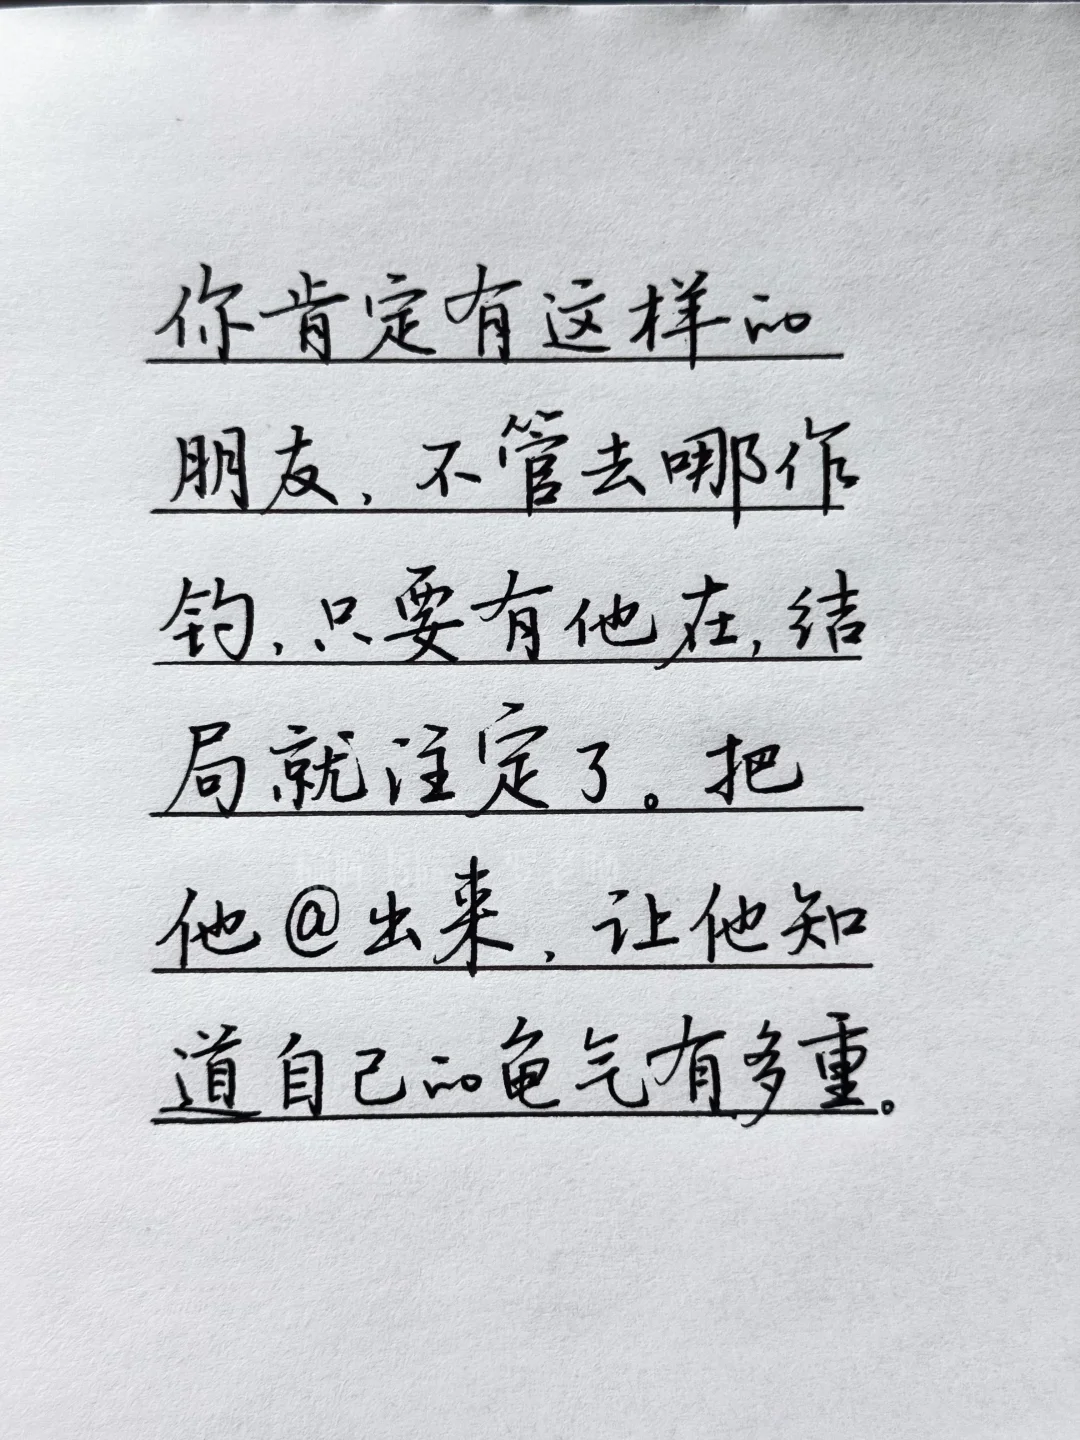 你肯定有这样的
朋友，不管去哪作
钓，只要有他在，结
局就注定了。把
他@出来，让他知
道自己的龟气有多重。